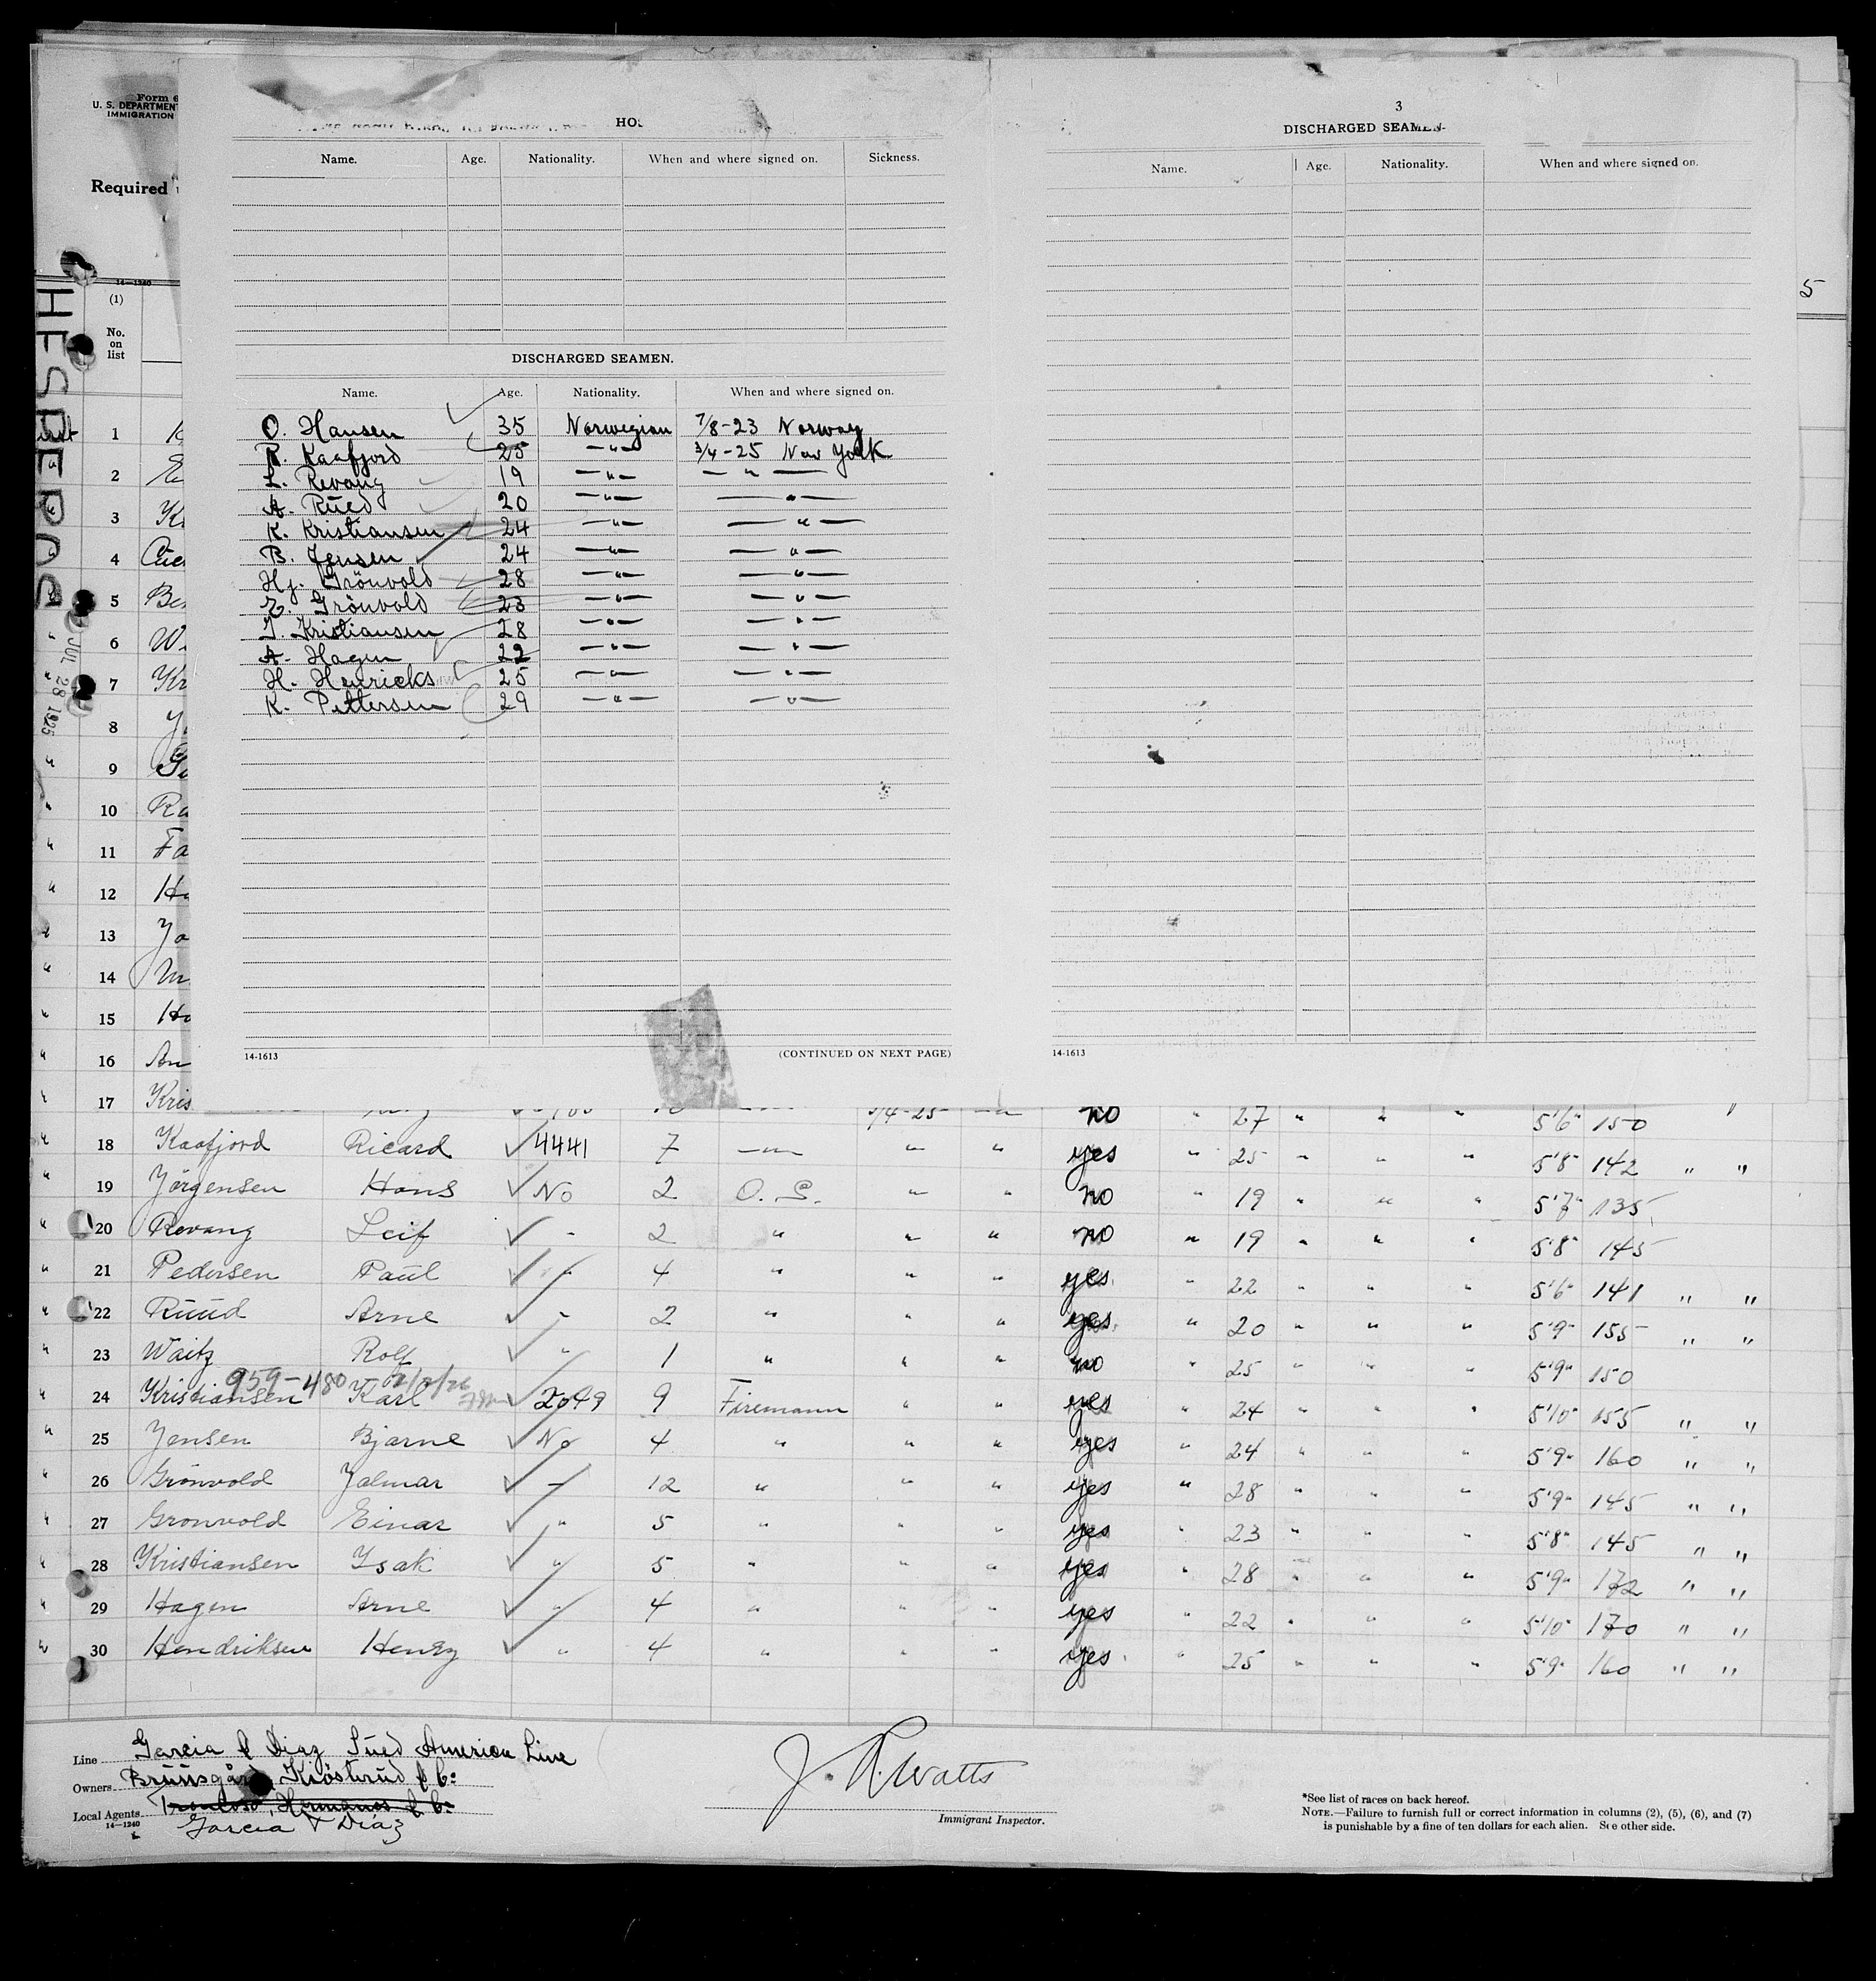 Form 6
U. S. DEPARTMENT
IMMIGRATION
Required
14—1240
(1)
No.
on
list
HESPEROS
JUL 28 1925
5
HO
Name. Age. Nationality. When and where signed on. Sickness.
DISCHARGED SEAMEN.
Name. Age. Nationality. When and where signed on.
O. Hansen 35 Norwegian 7/8-23 Norway
R. Kaafjord 25 —"— 3/4-25 New York
L. Revang 19 —"— —"—
A. Rued 20 —"— —"—
K. Kristiansen 24 —"— —"—
B. Jensen 24 —"— —"—
Hj. Grönvold 28 —"— —"—
E. Grönvold 23 —"— —"—
I. Kristiansen 28 —"— —"—
A. Hagen 22 —"— —"—
H. Henricks 25 —"— —"—
K. Pettersen 29 —"— —"—
14-1613
(CONTINUED ON NEXT PAGE)
3
DISCHARGED SEAMEN.
Name. Age. Nationality. When and where signed on.
14-1613
1
2
3 Kr
4
5 Be
6 W
7 Kr
8
9
10 Ra
11 Fa
12 Ha
13 Jo
14
15 Ha
16 An
17 Kris 3/4-25 —"— no " 27 " " " 5'6" 150
18 Kaafjord Ricard 4441 7 —"— " " yes " 25 " " " 5'8" 142 " "
19 Jörgensen Hans No 2 O. S. " " no " 19 " " " 5'7" 135
20 Revang Leif " 2 " " " no " 19 " " " 5'8" 145
21 Pedersen Paul " 4 " " " yes " 22 " " " 5'6" 141 " "
22 Ruud Arne " 2 " " " yes " 20 " " " 5'9" 155 " "
23 Waitz Rolf " 1 " " " no " 25 " " " 5'9" 150
959-480
24 Kristiansen Karl 2049 9 Firemann " " yes " 24 " " " 5'10" 155 " "
25 Jensen Bjarne No 4 " " " yes " 24 " " " 5'9" 160 " "
26 Grönvold Jalmar " 12 " " " yes " 28 " " " 5'9" 145 " "
27 Gronvold Einar " 5 " " " yes " 23 " " " 5'8" 145 " "
28 Kristiansen Ysak " 5 " " yes " 28 " " " 5'9" 172 " "
29 Hagen Arne " 4 " " " yes " 22 " " " 5'10" 170 " "
30 Hendriksen Henry " 4 " " " yes " 25 " " " 5'9" 160 " "
Line Garcia & Diaz Sued America Line
Owners Bruusgård Kiösterud & Co
Local Agents Troncoso, Hermanos & Co
14—1240
Garcia & Diaz
J. R. Watts
Immigrant Inspector.
*See list of races on back hereof.
NOTE.—Failure to furnish full or correct information in columns (2), (5), (6), and (7)
is punishable by a fine of ten dollars for each alien. See other side.